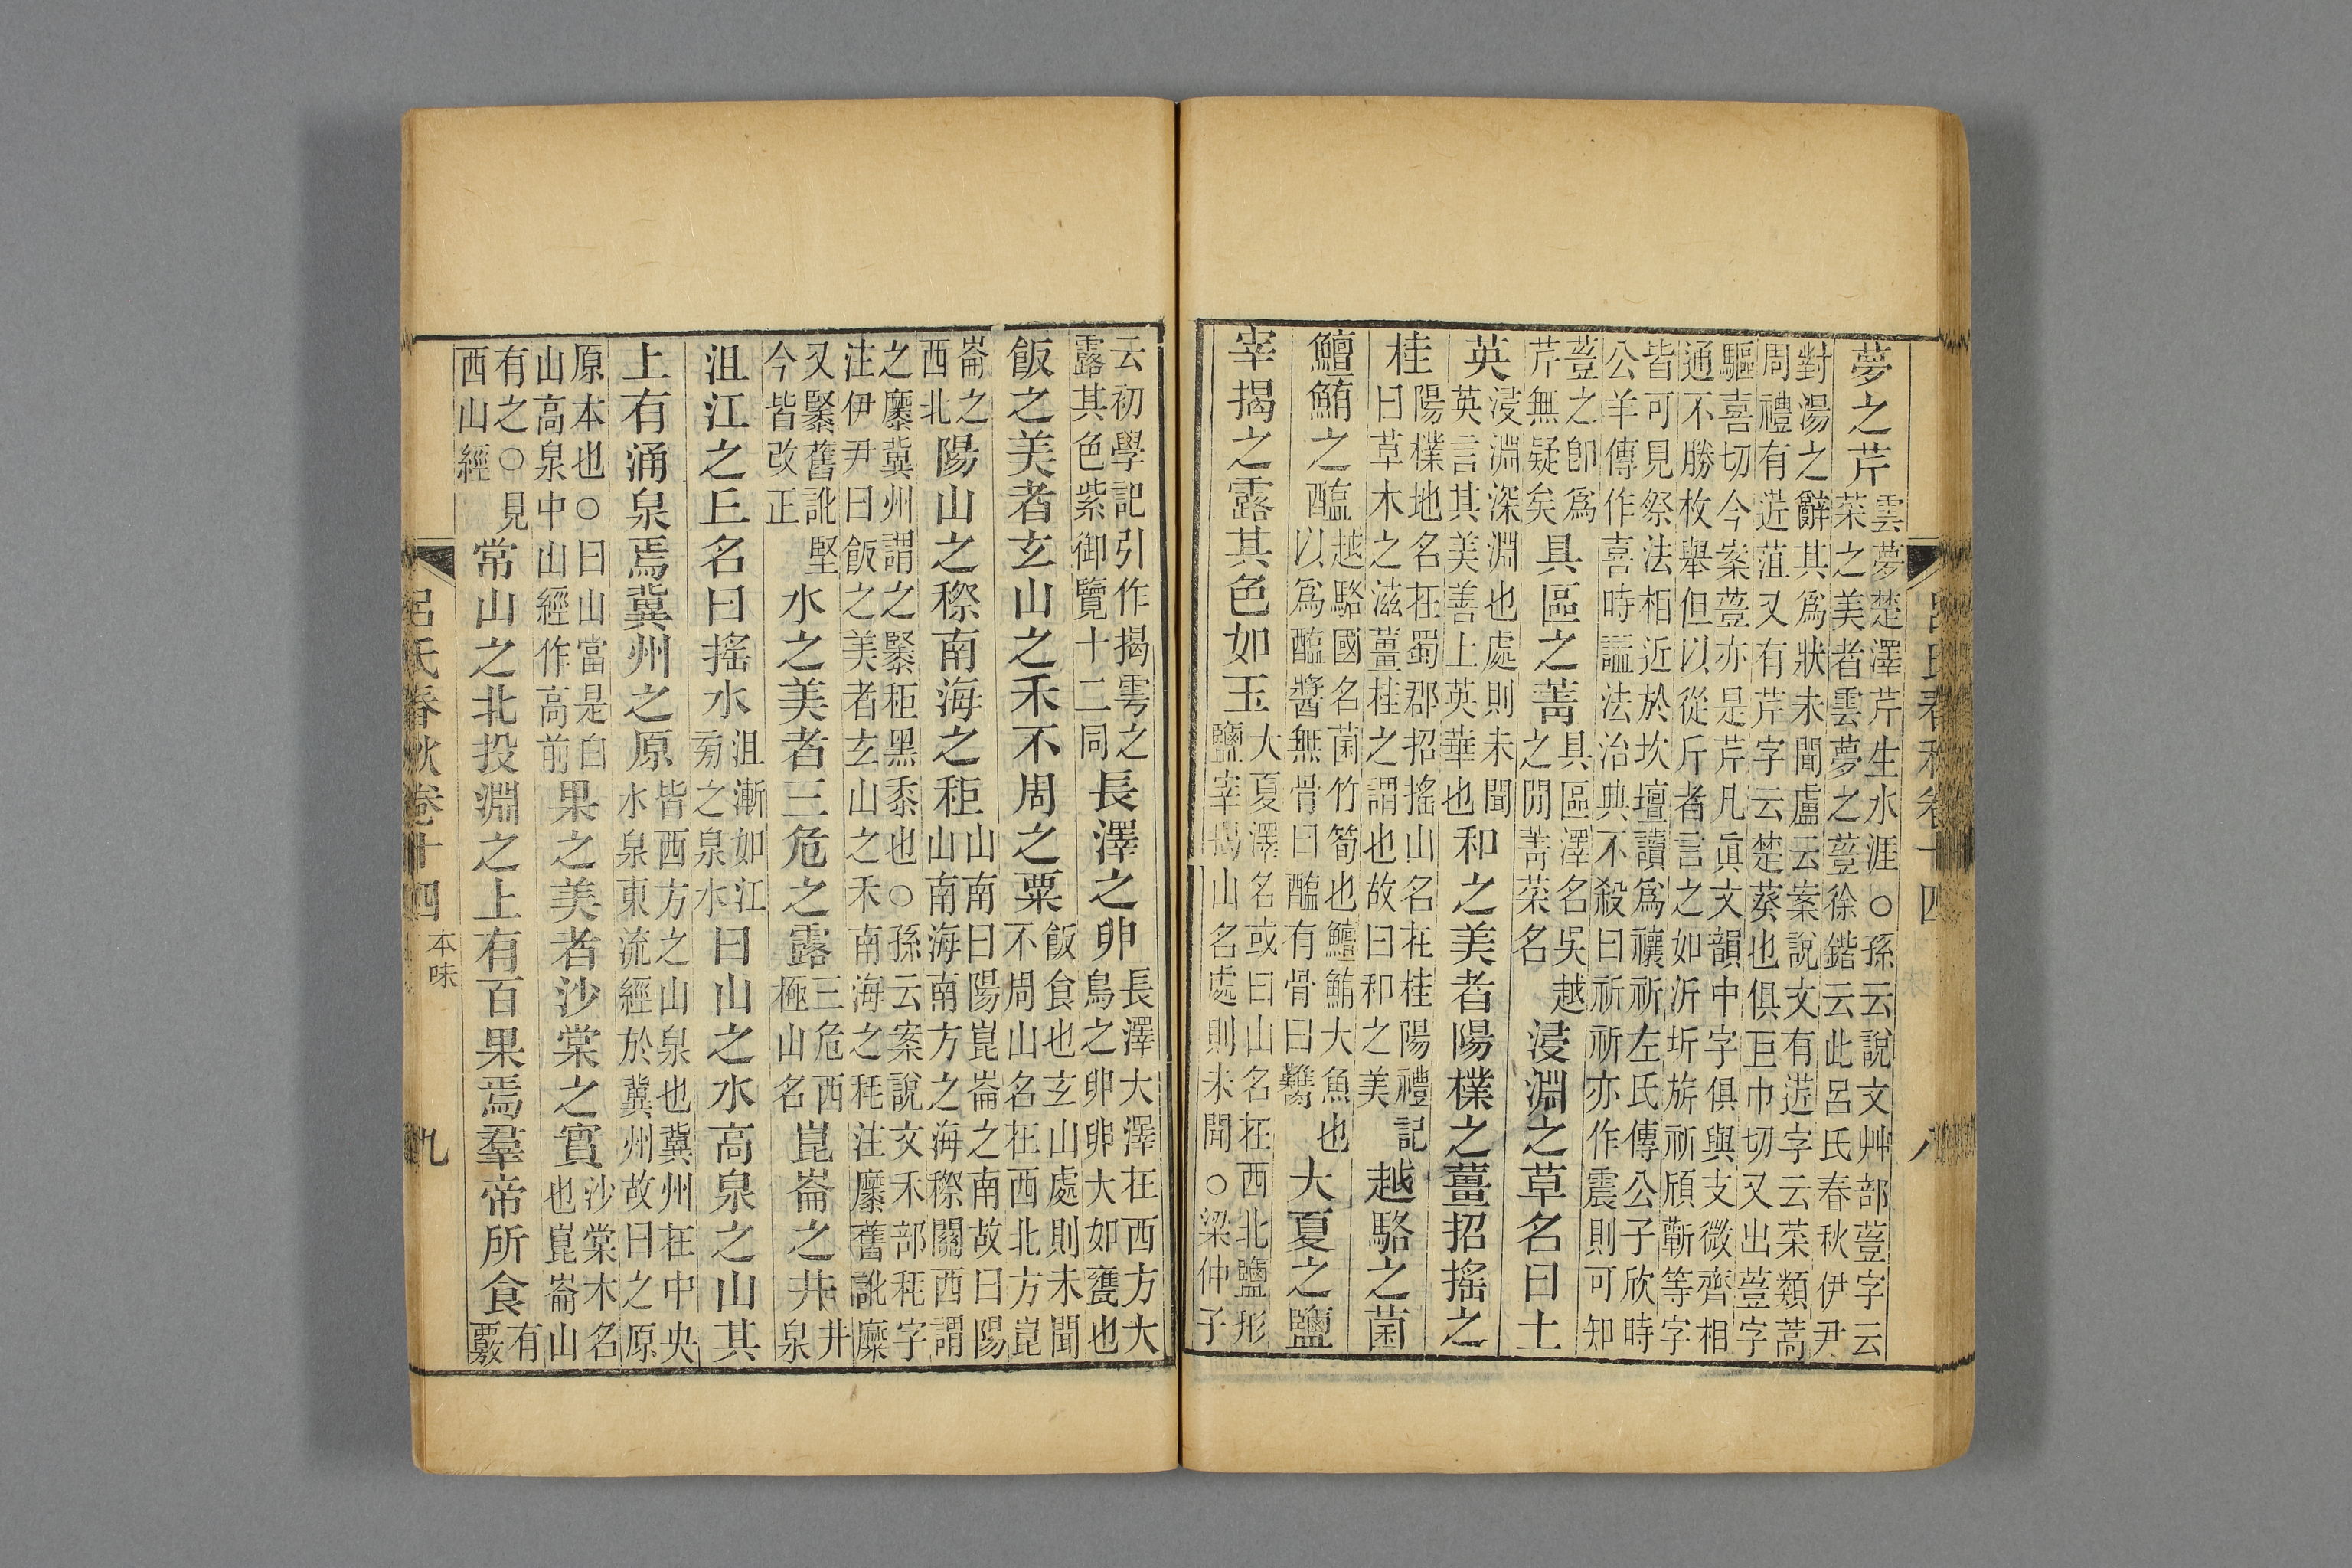 呂氏春秋卷十四 八
夢之芹雲夢楚澤芹生水涯○孫云說文艸部䔇字云菜之美者雲夢之䔇徐鍇云此呂氏春秋伊尹
對湯之辭其爲狀未聞盧云案說文有菦字云菜類蒿周禮有菦菹又有芹字云楚葵也俱巨巾切又出䔇字
驅喜切今案䔇亦是芹凡眞文韻中字俱與支微齊相通不勝枚舉但以從斤者言之如沂圻旂祈頎蘄等字
皆可見祭法相近於坎壇讀爲禳祈左氏傳公子欣時公羊傳作喜時諡法治典不殺曰祈祈亦作震則可知
䔇之卽爲芹無疑矣具區之菁具區澤名吳越之閒菁菜名浸淵之草名曰土
英浸淵深淵也處則未聞英言其美善上英華也和之美者陽樸之薑招搖之
桂陽樸地名在蜀郡招搖山名在桂陽禮記曰草木之滋薑桂之謂也故曰和之美越駱之菌
鱣鮪之醢越駱國名菌竹筍也鱣鮪大魚也以爲醢醬無骨曰醢有骨曰臡大夏之鹽
宰揭之露其色如玉大夏澤名或曰山名在西北鹽形鹽宰揭山名處則未聞○梁仲子
云初學記引作揭雩之露其色紫御覽十二同長澤之卵長澤大澤在西方大鳥之卵卵大如甕也
飯之美者玄山之禾不周之粟飯食也玄山處則未聞不周山名在西北方崑
崙之西北陽山之穄南海之秬山南曰陽崑崙之南故曰陽山南海南方之海穄關西謂
之䵚冀州謂之䅣秬黑黍也○孫云案說文禾部秏字注伊尹曰飯之美者玄山之禾南海之秏注䵚舊訛糜
又䅣舊訛堅今皆改正水之美者三危之露三危西極山名崑崙之井井泉
沮江之丘名曰搖水沮漸如江旁之泉水曰山之水高泉之山其
上有涌泉焉冀州之原皆西方之山泉也冀州在中央水泉東流經於冀州故曰之原
原本也○曰山當是白山高泉中山經作高前果之美者沙棠之實沙棠木名也崑崙山
有之○見西山經常山之北投淵之上有百果焉羣帝所食有覈
呂氏春秋卷十四 本味 九